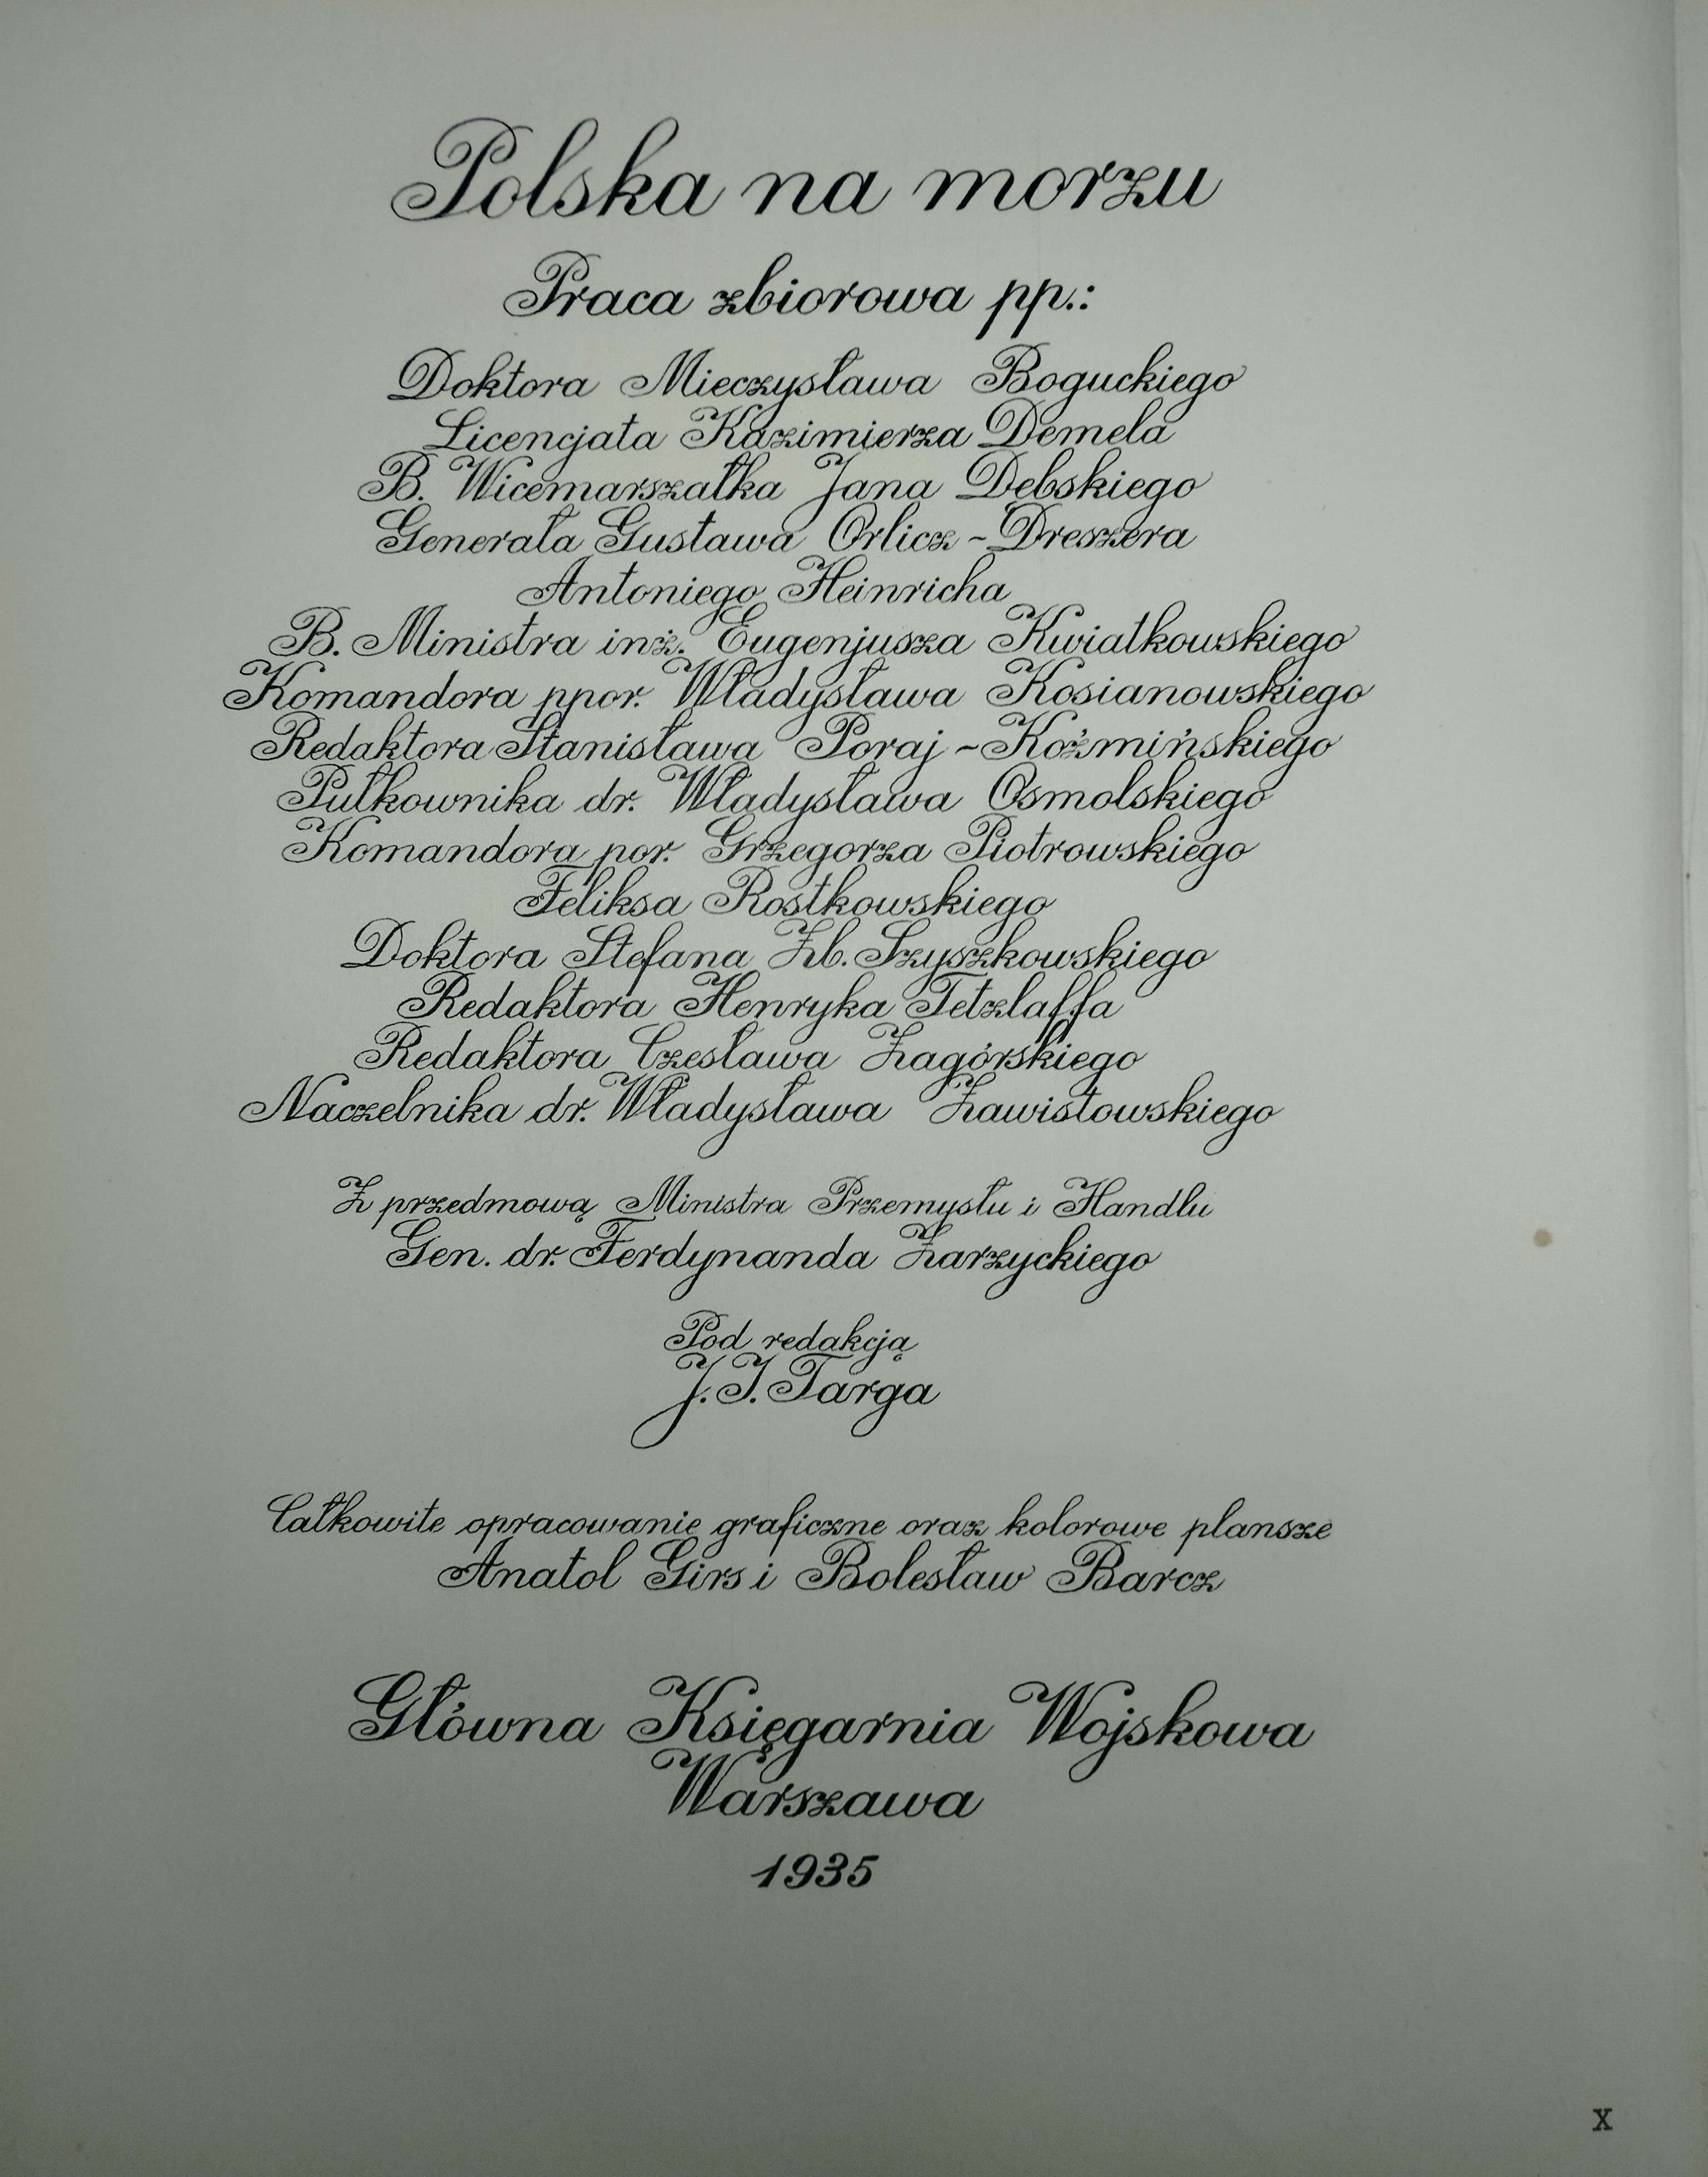 Polska na morzu
Praca zbiorowa pp.:
Doktora Mieczysława Boguckiego
Licencjata Kazimierza Demela
B. Wicemarszałka Jana Debskiego
Generała Gustawa Orlicz-Dreszera
Antoniego Heinricha
B. Ministra inż. Eugenjusza Kwiatkowskiego
Komandora ppor. Władysława Kosianowskiego
Redaktora Stanisława Poraj-Koźmińskiego
Pułkownika dr. Władysława Osmolskiego
Komandora por. Grzegorza Piotrowskiego
Feliksa Rostkowskiego
Doktora Stefana Zb. Szyszkowskiego
Redaktora Henryka Tetzlaffa
Redaktora Czesława Zagórskiego
Naczelnika dr. Władysława Zawistowskiego
Z przedmową Ministra Przemysłu i Handlu
Gen. dr. Ferdynanda Zarzyckiego
Pod redakcją
J. I. Targa
Całkowite opracowanie graficzne oraz kolorowe plansze
Anatol Girs i Bolesław Barcz
Główna Księgarnia Wojskowa
Warszawa
1935
X